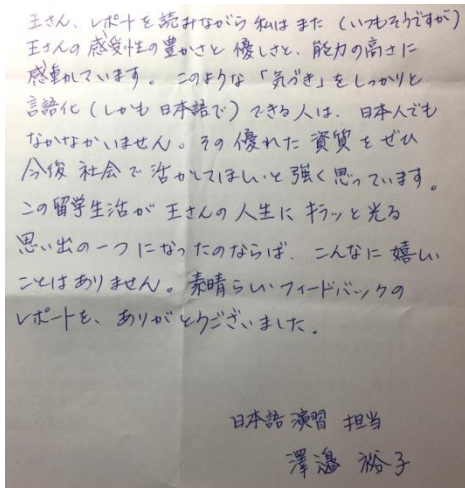 王さん、レポートを読みながら私はまた（いつもそうですが）
王さんの感受性の豊かさと優しさと、能力の高さに
感動しています。このような「気づき」をしっかりと
言語化（しかも日本語で）できる人は、日本人でも
なかなかいません。その優れた資質をぜひ
今後社会で活かしてほしいと強く思っています。
この留学生活が王さんの人生にキラッと光る
思い出の一つになったのならば、こんなに嬉しい
ことはありません。素晴らしいフィードバックの
レポートを、ありがとうございました。
日本語演習 担当
澤邉 裕子